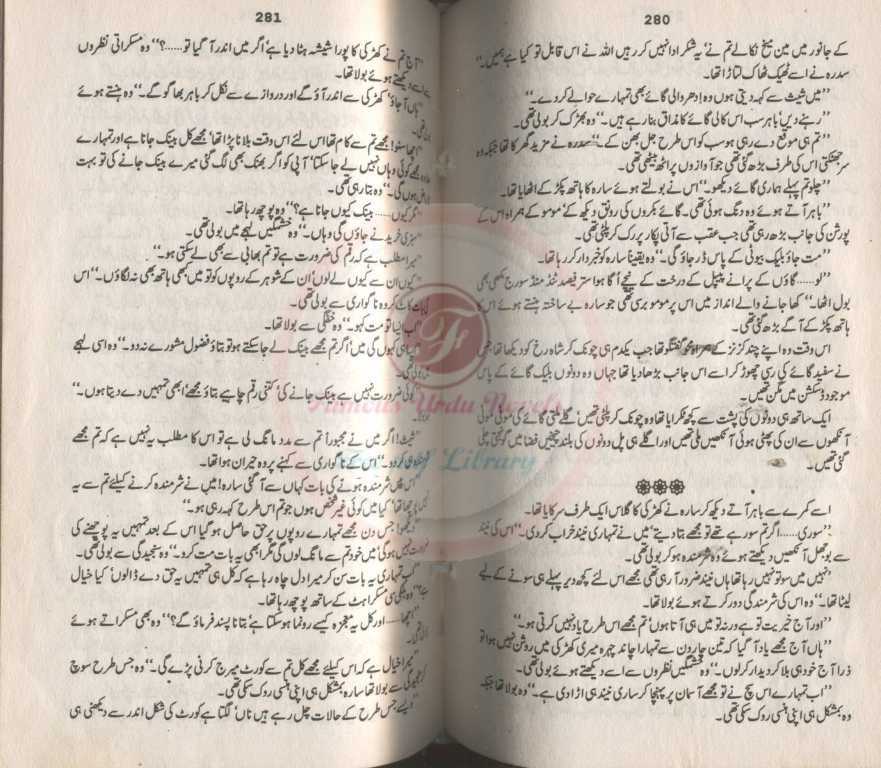 280
کے جانور میں مین میخ نکالے تم نے‘ یہ شکر ادا نہیں کر رہیں اللہ نے اس قابل تو کیا ہے ہمیں۔“
سدرہ نے اسے ٹھیک ٹھاک لتاڑا تھا۔
”میں شیث سے کہہ دیتی ہوں وہ ادھر والی گائے بھی تمہارے حوالے کر دے۔“
”رہنے دیں‘ باہر سب اس کالی گائے کا مذاق بنا رہے ہیں۔“ وہ بھڑک کر بولی تھی۔
”تم ہی موقع دے رہی ہو سب کو اس طرح جل بھن کے۔“ سدرہ نے مزید گھرکا تھا جبکہ وہ
سر جھٹکتی اس کی طرف بڑھ گئی تھی جو آوازوں پر اٹھ بیٹھی تھی۔
”چلو تم پہلے ہماری گائے دیکھو۔“ اس نے بولتے ہوئے سارہ کا ہاتھ پکڑ کے اٹھایا تھا۔
”باہر آتے ہوئے وہ دنگ ہوئی تھی۔ گائے بکروں کی رونق دیکھ کے‘ مومو کے ہمراہ اس کے
پورشن کی جانب بڑھ رہی تھی جب عقب سے آتی پکار پر رک کر پلٹی تھی۔
”مت جاؤ بلیک بیوٹی کے پاس ڈر جاؤ گی۔“ وہ یقیناً سارہ کو خبردار کر رہا تھا۔
”لو...... گاؤں کے پرانے پیپل کے درخت کے نیچے آگا ہوا ستر فیصد ٹنڈ منڈ سورج مکھی بھی
بول اٹھا۔“ کھا جانے والے انداز میں اس پر مومو برسی تھی جو سارہ بے ساختہ ہنستے ہوئے اس کا
ہاتھ پکڑ کے آگے بڑھ گئی تھی۔
اس وقت وہ اپنے چند کزنز کے ہمراہ محو گفتگو تھا جب یکدم ہی چونک کر شاہ رخ کو دیکھا تھا جس
نے سفید گائے کی رسی چھوڑ کر اسے اس جانب بڑھا دیا تھا جہاں وہ دونوں بلیک گائے کے پاس
موجود ڈسکشن میں مگن تھیں۔
ایک ساتھ ہی دونوں کی پشت سے کچھ ٹکرایا تھا وہ چونک کر پلٹی تھیں‘ گلے ملتی گائے کی موٹی موٹی
آنکھوں سے ان کی پھٹی ہوئی آنکھیں ملی تھیں اور اگلے ہی پل دونوں کی بلند چیخیں فضا میں گونجتی چلی
گئی تھیں۔
اسے کمرے سے باہر آتے دیکھ کر سارہ نے کھڑکی کا گلاس ایک طرف سرکایا تھا۔
”سوری...... اگر تم سو رہے تھے تو مجھے بتا دیتے‘ میں نے تمہاری نیند خراب کر دی۔“ اس کی نیند
سے بوجھل آنکھیں دیکھتے ہوئے وہ شرمندہ ہو کر بولی تھی۔
”نہیں میں سو تو نہیں رہا تھا ہاں نیند ضرور آ رہی تھی مجھے اس لئے کچھ دیر پہلے ہی سونے کے لیے
لیٹا تھا۔“ وہ اس کی شرمندگی دور کرتے ہوئے بولا تھا۔
”اور آج خیریت تو ہے ورنہ تو میں ہی آتا ہوں‘ تم مجھے اس طرح یاد نہیں کرتی ہو۔“
”ہاں آج مجھے یاد آ گیا کہ تین چار دن سے تمہارا چاند چہرہ میری کھڑکی میں روشن نہیں ہوا تو
ذرا آج خود ہی بلا کر دیدار کرلوں۔“ وہ خشمگیں نظروں سے اسے دیکھتے ہوئے بولی تھی۔
”اب تمہارے اس سچ نے تو مجھے آسمان پر پہنچا کر ساری نیند ہی اڑا دی ہے۔“ وہ بولا تھا جبکہ
وہ بمشکل ہی اپنی ہنسی روک سکی تھی۔
281
”آج تم نے کھڑکی کا پورا شیشہ ہٹا دیا ہے‘ اگر میں اندر آ گیا تو......؟“ وہ مسکراتی نظروں
سے اسے دیکھتے ہوئے بولا تھا۔
”ہاں آ جاؤ‘ کھڑکی سے اندر آؤ گے اور دروازے سے نکل کر باہر بھاگو گے۔“ وہ ہنستے ہوئے
بولی تھی۔
”اچھا سنو! مجھے تم سے کام تھا اس لئے اس وقت بلانا پڑا تھا‘ مجھے کل بینک جانا ہے اور تمہارے
علاوہ مجھے کوئی وہاں نہیں لے جا سکتا‘ آپی کو اگر بھنک بھی لگ گئی میرے بینک جانے کی تو بہت
ناراض ہوں گی۔“ وہ بتا رہی تھی۔
”مگر کیوں...... بینک کیوں جانا ہے؟“ وہ پوچھ رہا تھا۔
”سبزی خریدنے جاؤں گی وہاں۔“ وہ خشمگیں لہجے میں بولی تھی۔
”میرا مطلب ہے کہ رقم کی ضرورت ہے تو تم بھابی سے بھی لے سکتی ہو۔“
”کیوں ان سے کیوں لے لوں‘ ان کے شوہر کے روپوں کو تو میں بھی ہاتھ بھی نہ لگاؤں۔“ اس
کی بات کاٹ کر وہ ناگواری سے بولی تھی۔
”اب ایسا تو مت کہو۔“ وہ خفگی سے بولا تھا۔
”ایسا ہی کہوں گی میں‘ اگر تم مجھے بینک لے جا سکتے ہو تو بتاؤ فضول مشورے نہ دو۔“ وہ اسی لہجے
میں بولی تھی۔
”کوئی ضرورت نہیں ہے بینک جانے کی‘ کتنی رقم چاہیے بتاؤ مجھے‘ ابھی تمہیں دے دیتا ہوں۔“
”شیث! اگر میں نے مجبوراً تم سے مدد مانگ لی ہے تو اس کا مطلب یہ نہیں ہے کہ تم مجھے
شرمندہ ہی کردو۔“ اس کے ناگواری سے کہنے پر وہ حیران ہوا تھا۔
”اس میں شرمندہ ہونے کی بات کہاں سے آ گئی سارہ! میں نے شرمندہ کرنے کیلئے تم سے یہ
نہیں پوچھا تھا‘ کیا میں کوئی غیر شخص ہوں جو تم اس طرح کہہ رہی ہو۔“
”دیکھو! جس دن مجھے تمہارے روپوں پر حق حاصل ہو گیا اس کے بعد تمہیں یہ پوچھنے کی
ضرورت نہیں ہوگی‘ میں خود تم سے مانگ لوں گی مگر ابھی یہ بات مت کرو۔“ وہ سنجیدگی سے بولی تھی۔
”اب تمہاری یہ بات سن کر میرا دل چاہ رہا ہے کہ کل ہی تمہیں یہ حق دے ڈالوں‘ کیا خیال
ہے؟“ وہ ہلکی ہی مسکراہٹ کے ساتھ پوچھ رہا تھا۔
”اچھا...... اور کل یہ معجزہ کیسے رونما ہو سکتا ہے‘ بتانا پسند فرماؤ گے؟“ وہ بھی مسکراتے ہوئے
بولی تھی۔
”میرا خیال ہے کہ اس کیلئے مجھے کل تم سے کورٹ میرج کرنی پڑے گی۔“ وہ جس طرح سوچ
کر سنجیدگی سے بولا تھا سارہ بمشکل ہی اپنی ہنسی روک سکی تھی۔
”ایسے جس طرح کے حالات چل رہے ہیں ناں‘ لگتا ہے کورٹ کی شکل اندر سے دیکھنی ہی
Famous Urdu Novels
Library